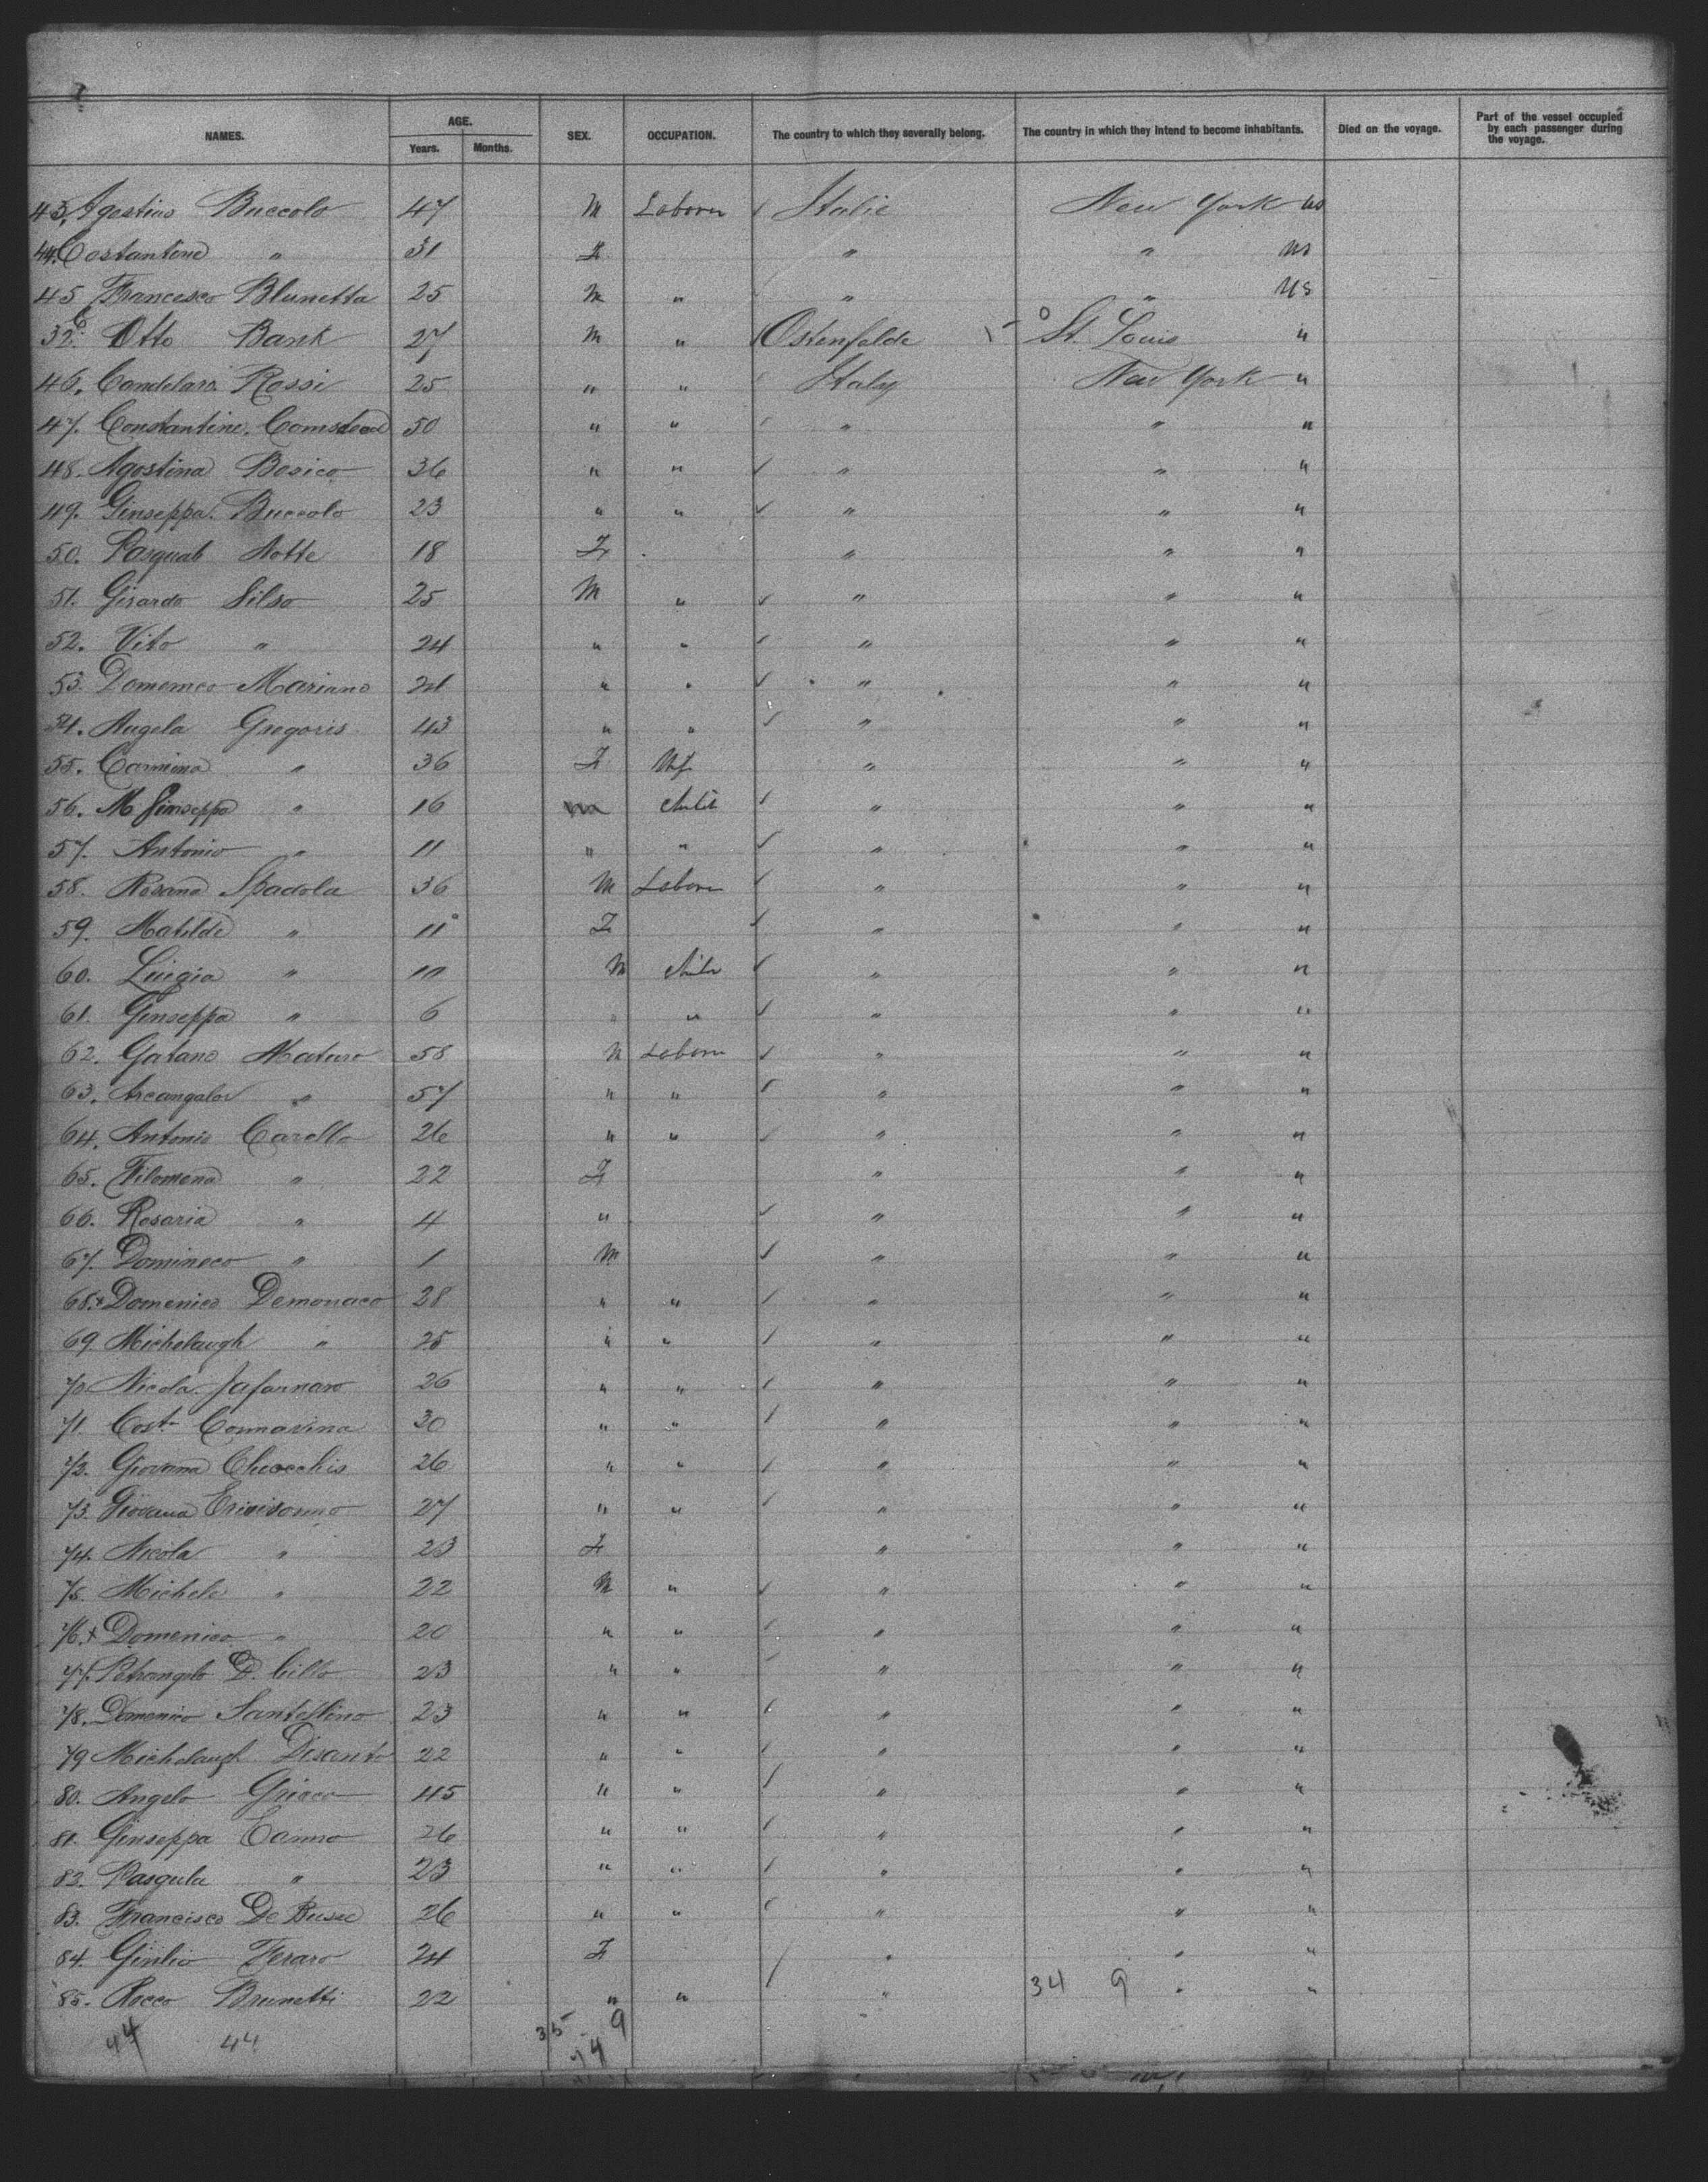 NAMES. AGE. Years. Months. SEX. OCCUPATION. The country to which they severally belong. The country in which they intend to become inhabitants. Died on the voyage. Part of the vessel occupied by each passenger during the voyage.
43. Agostino Buccolo 47 M Laborer Italie New York us
44. Costantino " 31 F " " us
45 Francesco Blunetta 25 M " " " us
32. Otto Bank 27 M " Ostenfelde St. Louis "
46. Candelaro Rossi 25 " " Italy New York "
47. Constantine 50 " " " " "
48. Agostina Bosico 36 " " " " "
49. Ginseppa Buccolo 23 " " " " "
50. Pasquab Notte 18 F " " "
51. Girardo Silso 25 M " " " "
52. Vito " 24 " " " " "
53. Domenico Mariano 21 " " " " "
54. Angela Gregoris 43 " " " " "
55. Carmina " 36 F Wf " " "
56. M Ginseppa " 16 Child " " "
57. Antonio " 11 " " " " "
58. Rosano Spadola 36 M Labore " " "
59. Matilde " 11 F " " "
60. Luigia " M Child " " "
61. Ginseppa " 6 " " " "
62. Gatano Maturo 58 M Labore " " "
63. Arcangalor " 57 " " " " "
64. Antonio Carello 26 " " " " "
65. Filomena " 22 F " " "
66. Rosaria " 4 " " " "
67. Domineco " 1 M " " "
68. x Domenico Demonaco 28 " " " " "
69 Michelaugh " 25 " " " " "
70 Nicola Jafarnaro 26 " " " " "
71. Costn Connavina 30 " " " " "
72. Giovanna Checchis 26 " " " " "
73. Giovanna 27 " " " " "
74. Nicola " 23 F " " "
75. Michele " 22 M " " " "
76. x Domenico " 20 " " " " "
77. Petrangelo D. Cillo 23 " " " " "
78. Domenico 23 " " " " "
79 Michelaugh Disanto 22 " " " " "
80. Angelo Grieco 45 " " " " "
81. Ginseppa Canno 26 " " " " "
82. Pasqula " 23 " " " " "
83. Francisco De Buse 26 " " " " "
84. Giulio Feraro 24 F " " "
85. Rocco Brunetti 22 " " " 34 9 " "
44 44 35 9